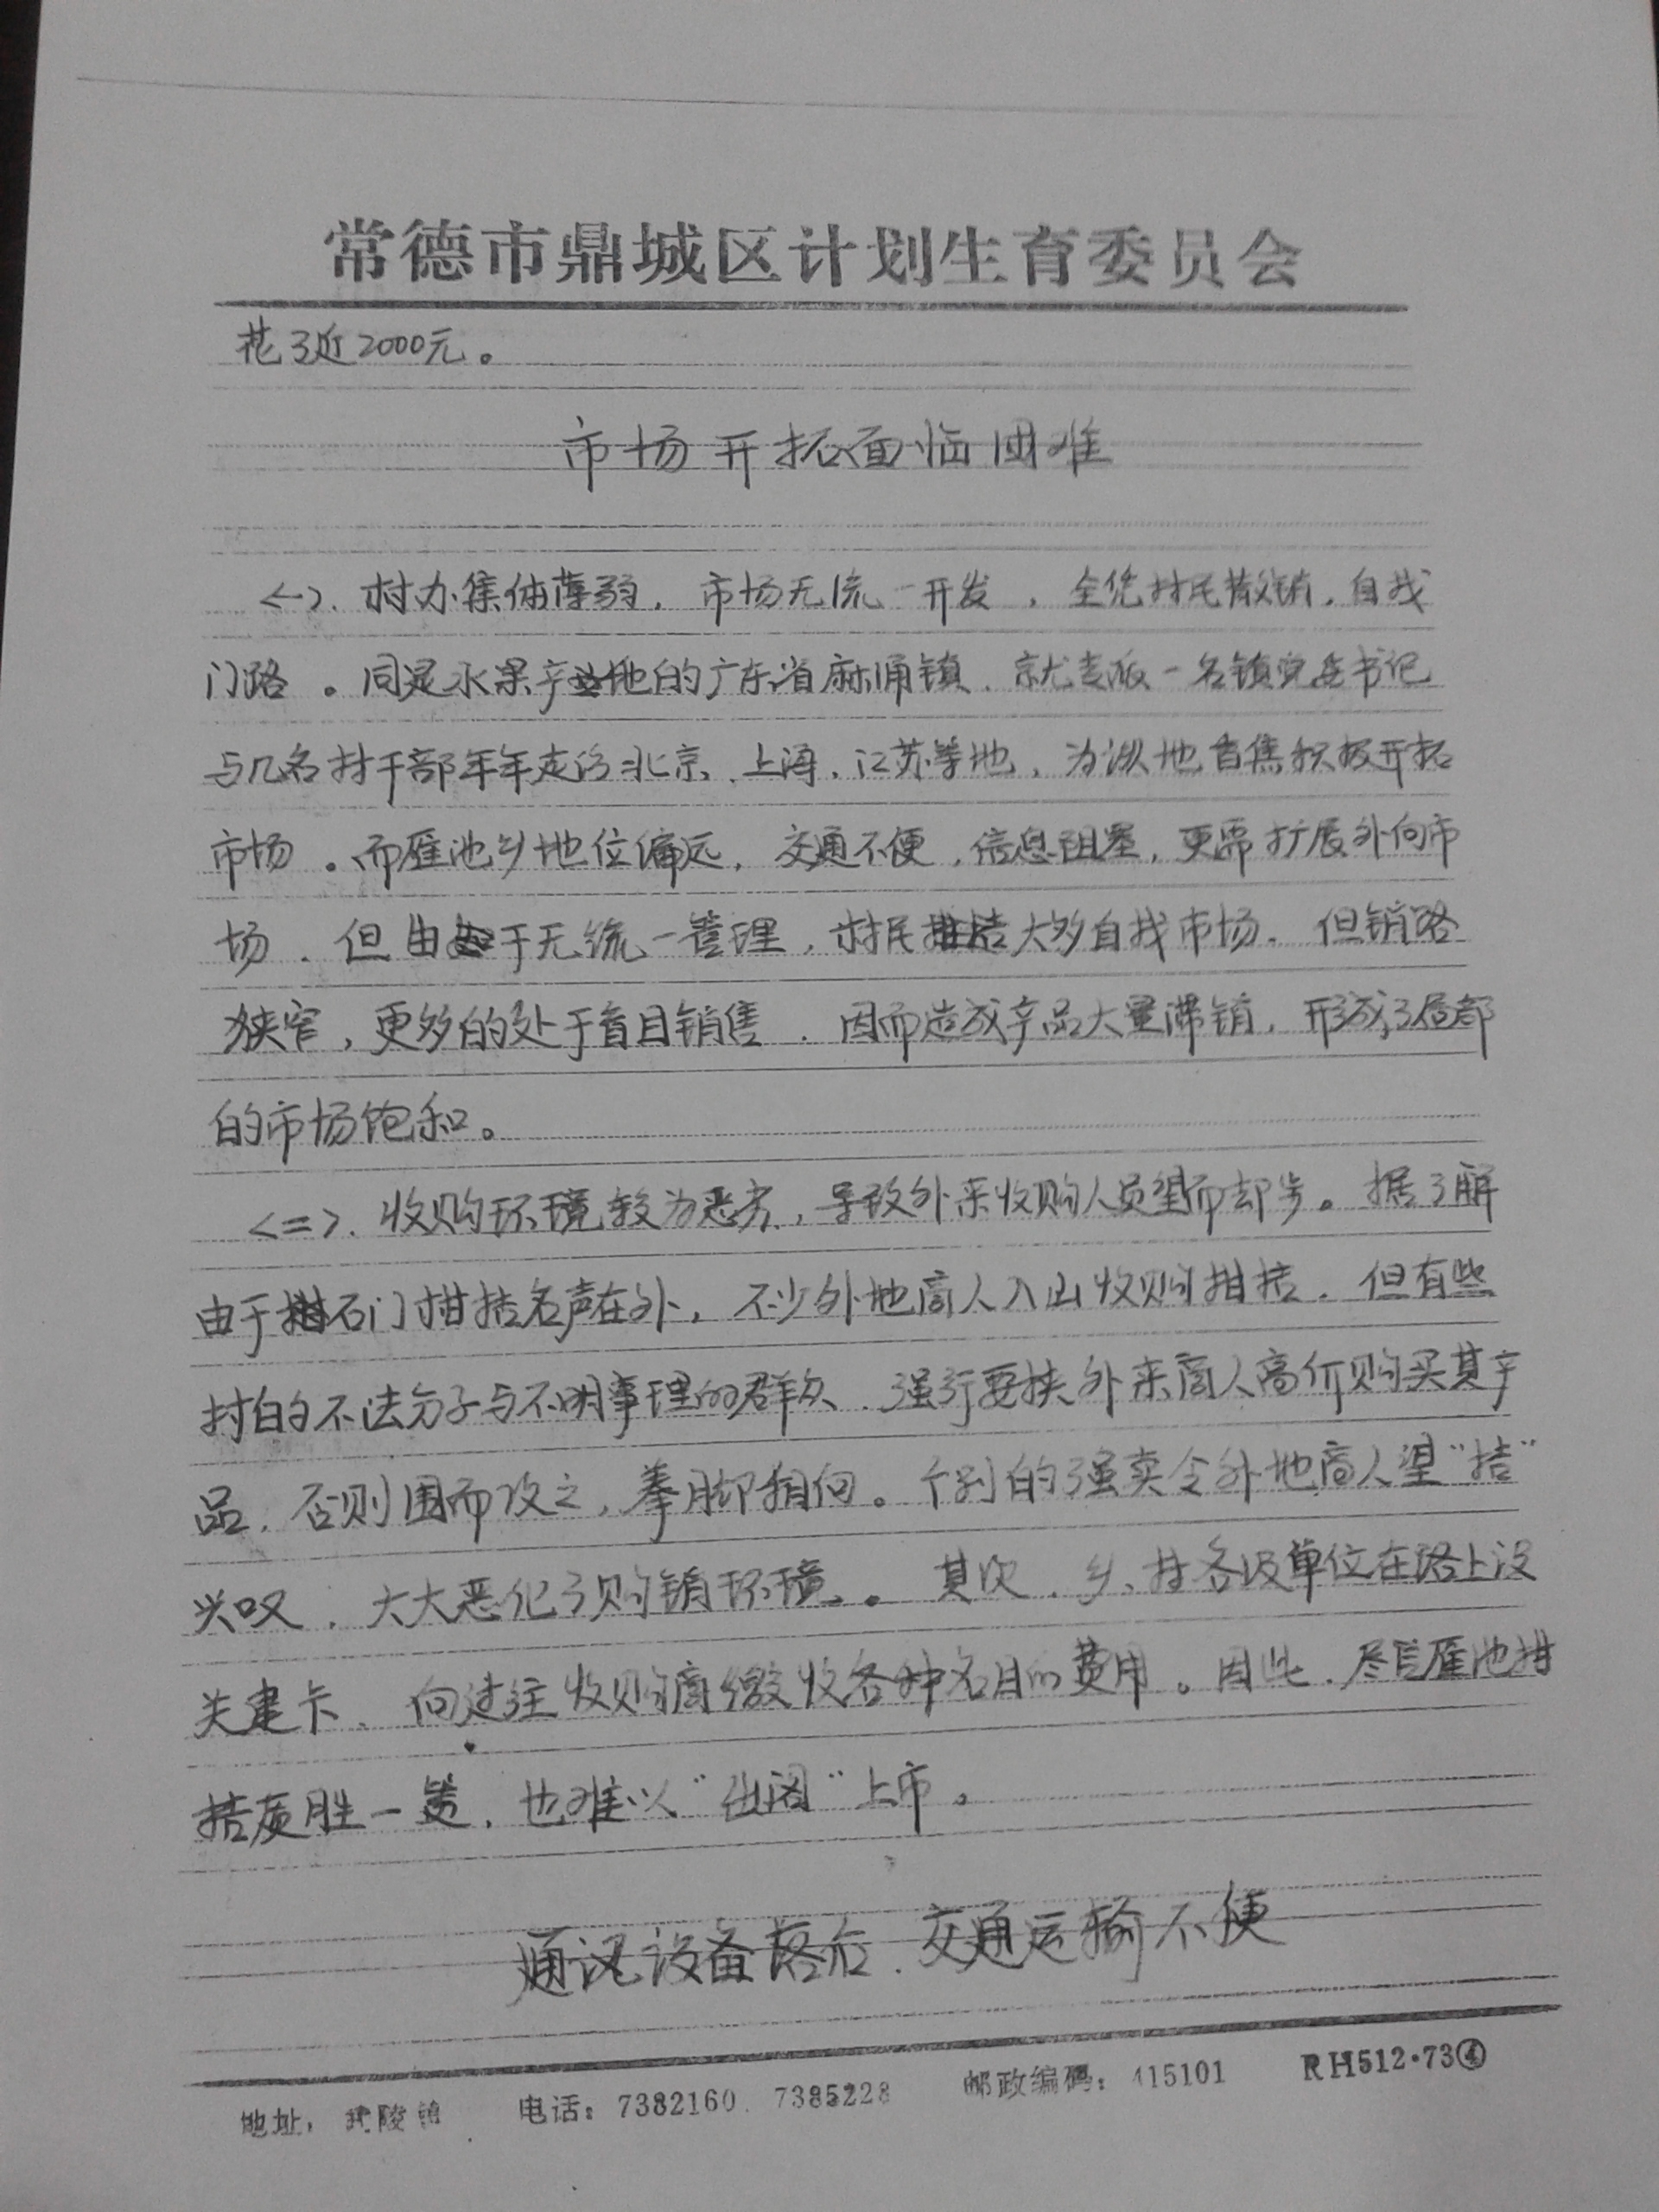 常德市鼎城区计划生育委员会
花了近2000元。
市场开拓面临困难
<一>.村办集体薄弱,市场无统一开发,全凭村民散销,自找
门路。同是水果产地的广东省麻涌镇,就专派一名镇党委书记
与几名村干部年年走访北京、上海、江苏等地,为该地香蕉积极开拓
市场。而雁池乡地位偏远,交通不便,信息阻塞,更需扩展外向市
场,但由于无统一管理,村民大多自找市场,但销路
狭窄,更多的处于盲目销售,因而造成产品大量滞销,形成了局部
的市场饱和。
<二>.收购环境较为恶劣,导致外来收购人员望而却步。据了解
由于石门柑桔名声在外,不少外地商人入山收购柑桔,但有些
村的不法分子与不明事理的群众,强行要挟外来商人高价购买其产
品,否则围而攻之,拳脚相向。个别的强卖令外地商人望“桔”
兴叹,大大恶化了购销环境。其次,乡、村各级单位在路上设
关建卡,向过往收购商缴收各种名目的费用。因此,尽管雁池柑
桔质胜一筹,也难以“出阁”上市。
通讯设备落后、交通运输不便
地址:武陵镇 电话:7382160 7385228 邮政编码:415101 RH512·73④